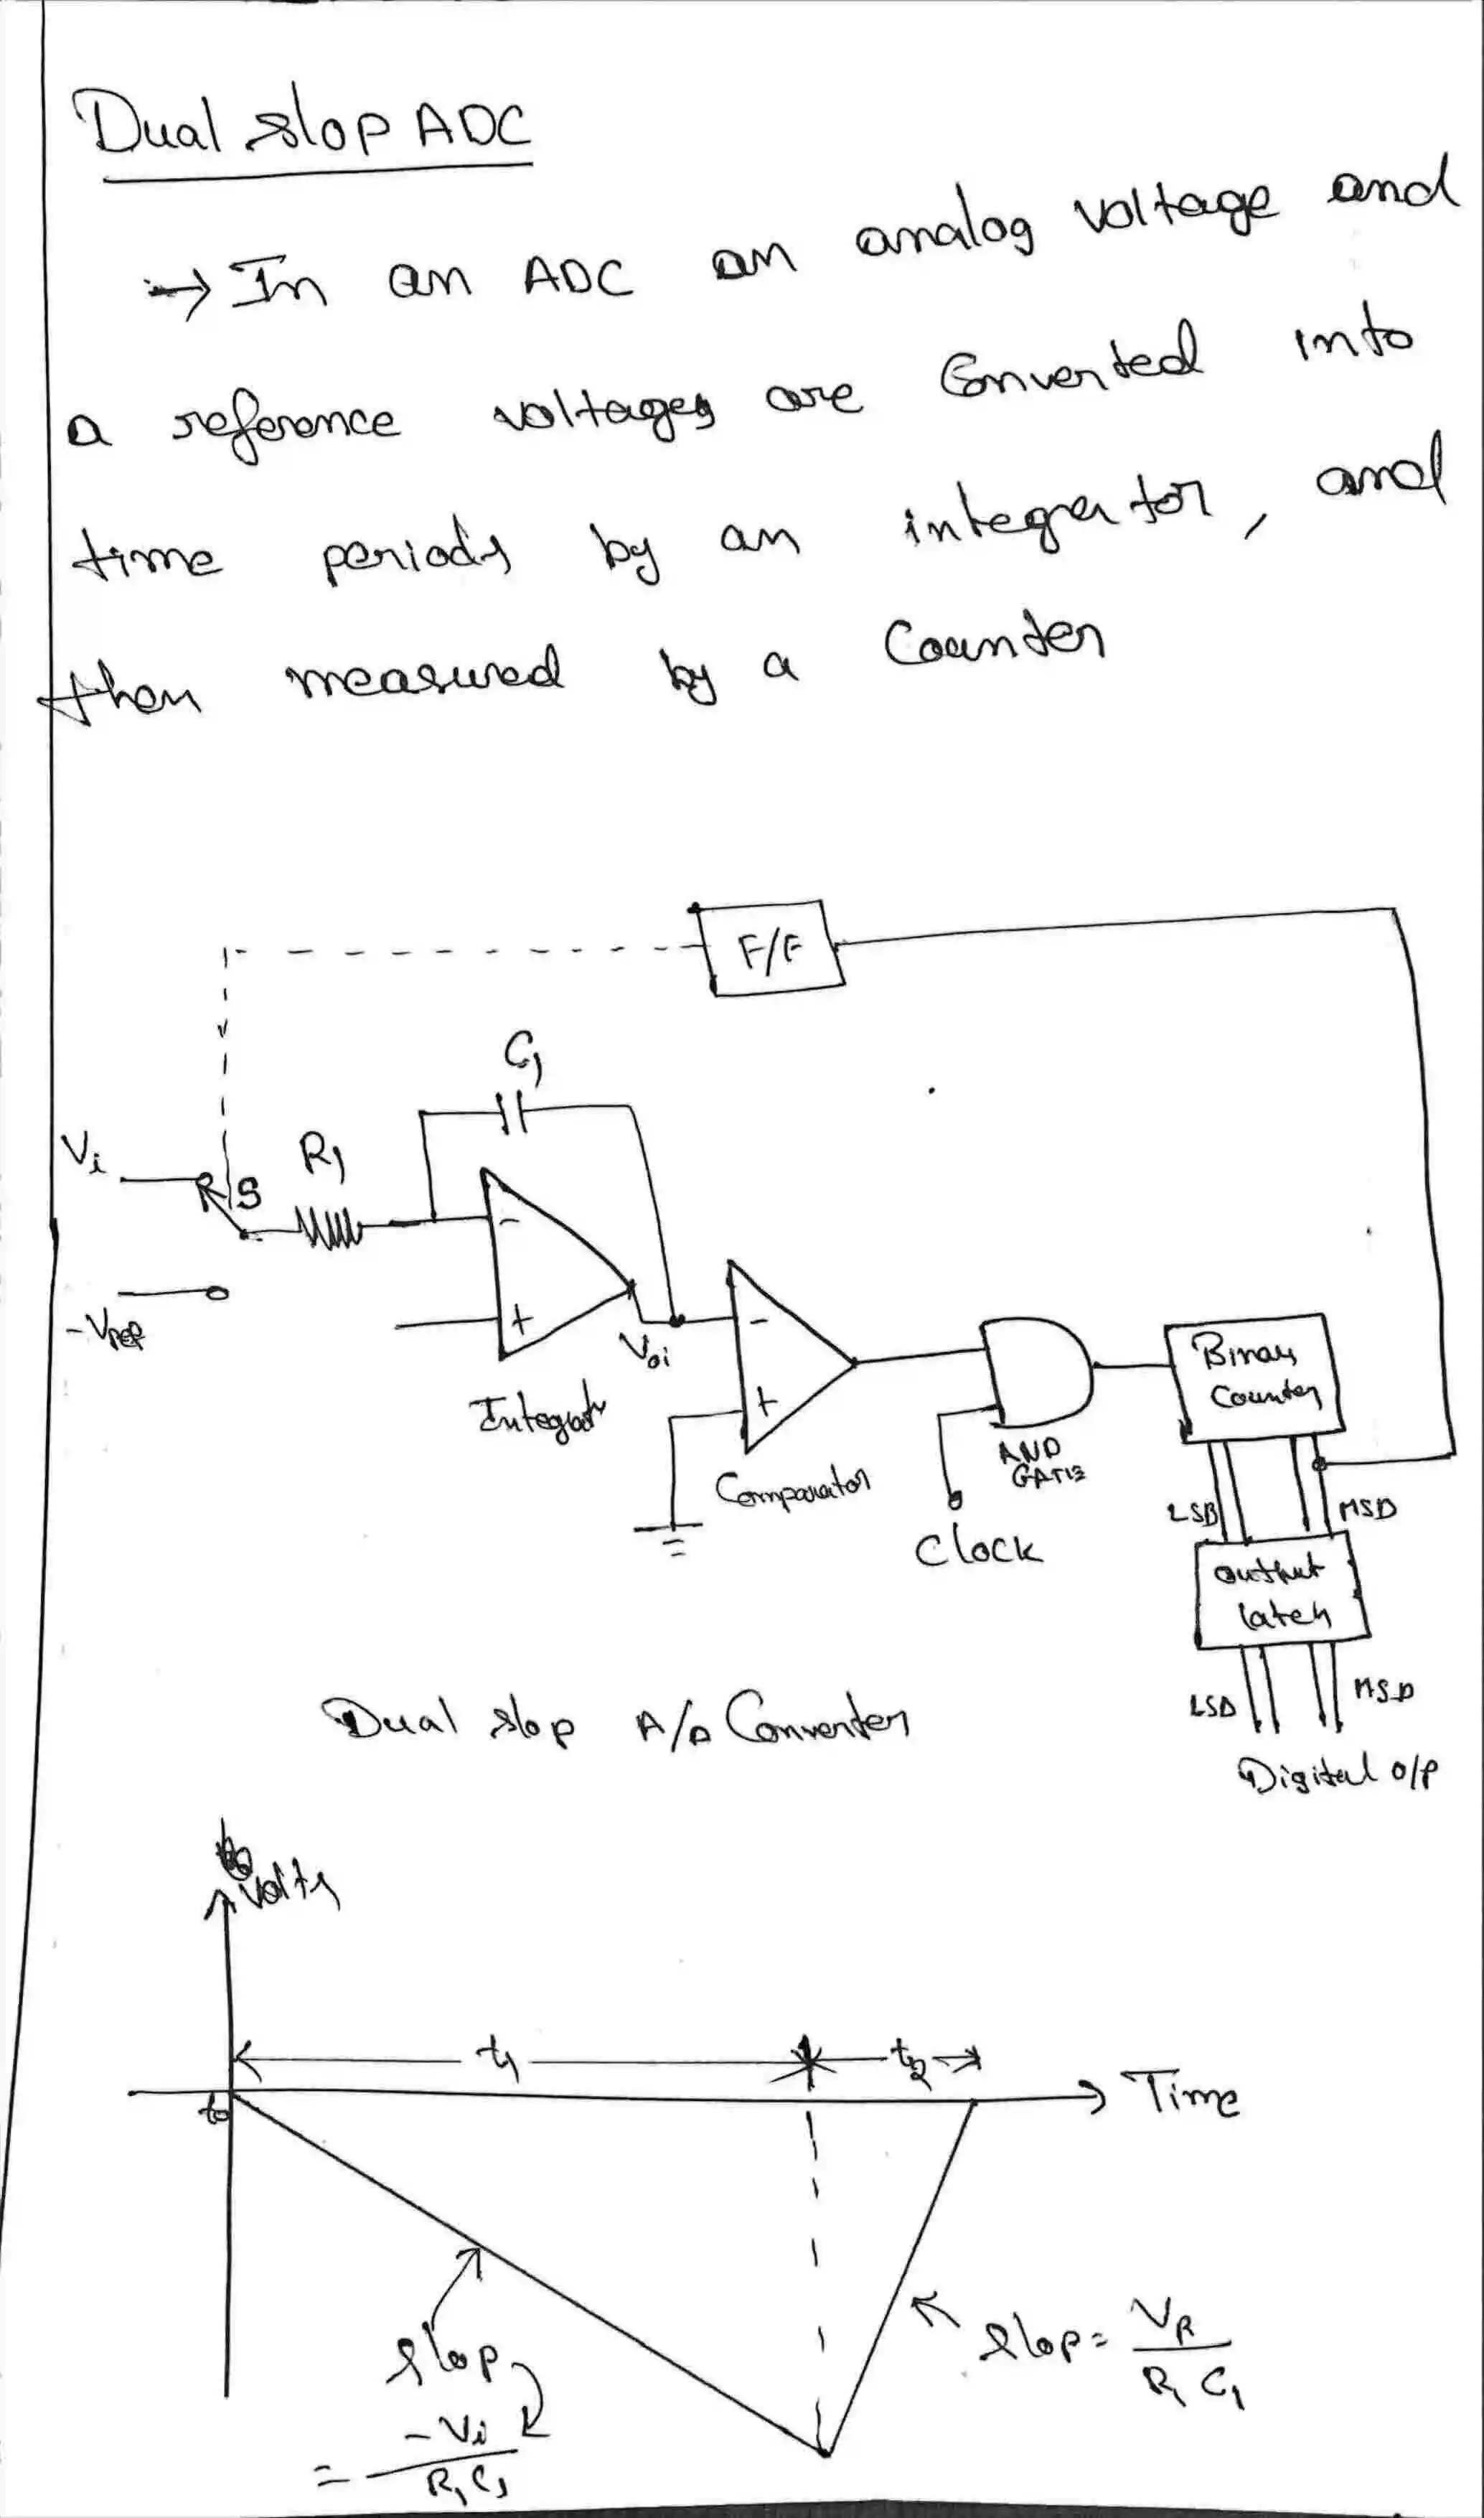 Dual slop ADC
→ In an ADC an analog voltage and
a reference voltages are Converted into
time periods by an integrator, and
then measured by a Counter
F/F
C1
Vi
R1
S
-VREF
-
+
Voi
Integrator
-
+
Comparator
AND
GATE
Clock
Binary
Counter
LSB
MSD
output
latch
LSD
MSD
Digital O/P
Dual slop A/D Converter
Volts
t1
t2
Time
to
slop
= -Vi / R1C1
slop = VR / R1 C1